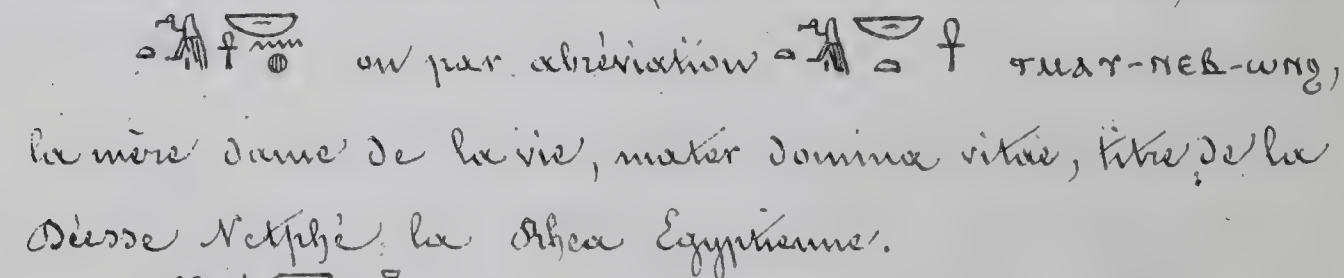 𓏏𓅐𓋹𓎟𓈖𓐍 ou par abréviation 𓏏𓅐𓎟𓏏𓋹 ⲧⲙⲁⲩ-ⲛⲉⲃ-ⲱⲛϩ,
la mère dame de la vie, mater domina vitae, titre de la
Déesse Netphé la Rhea Egyptienne.